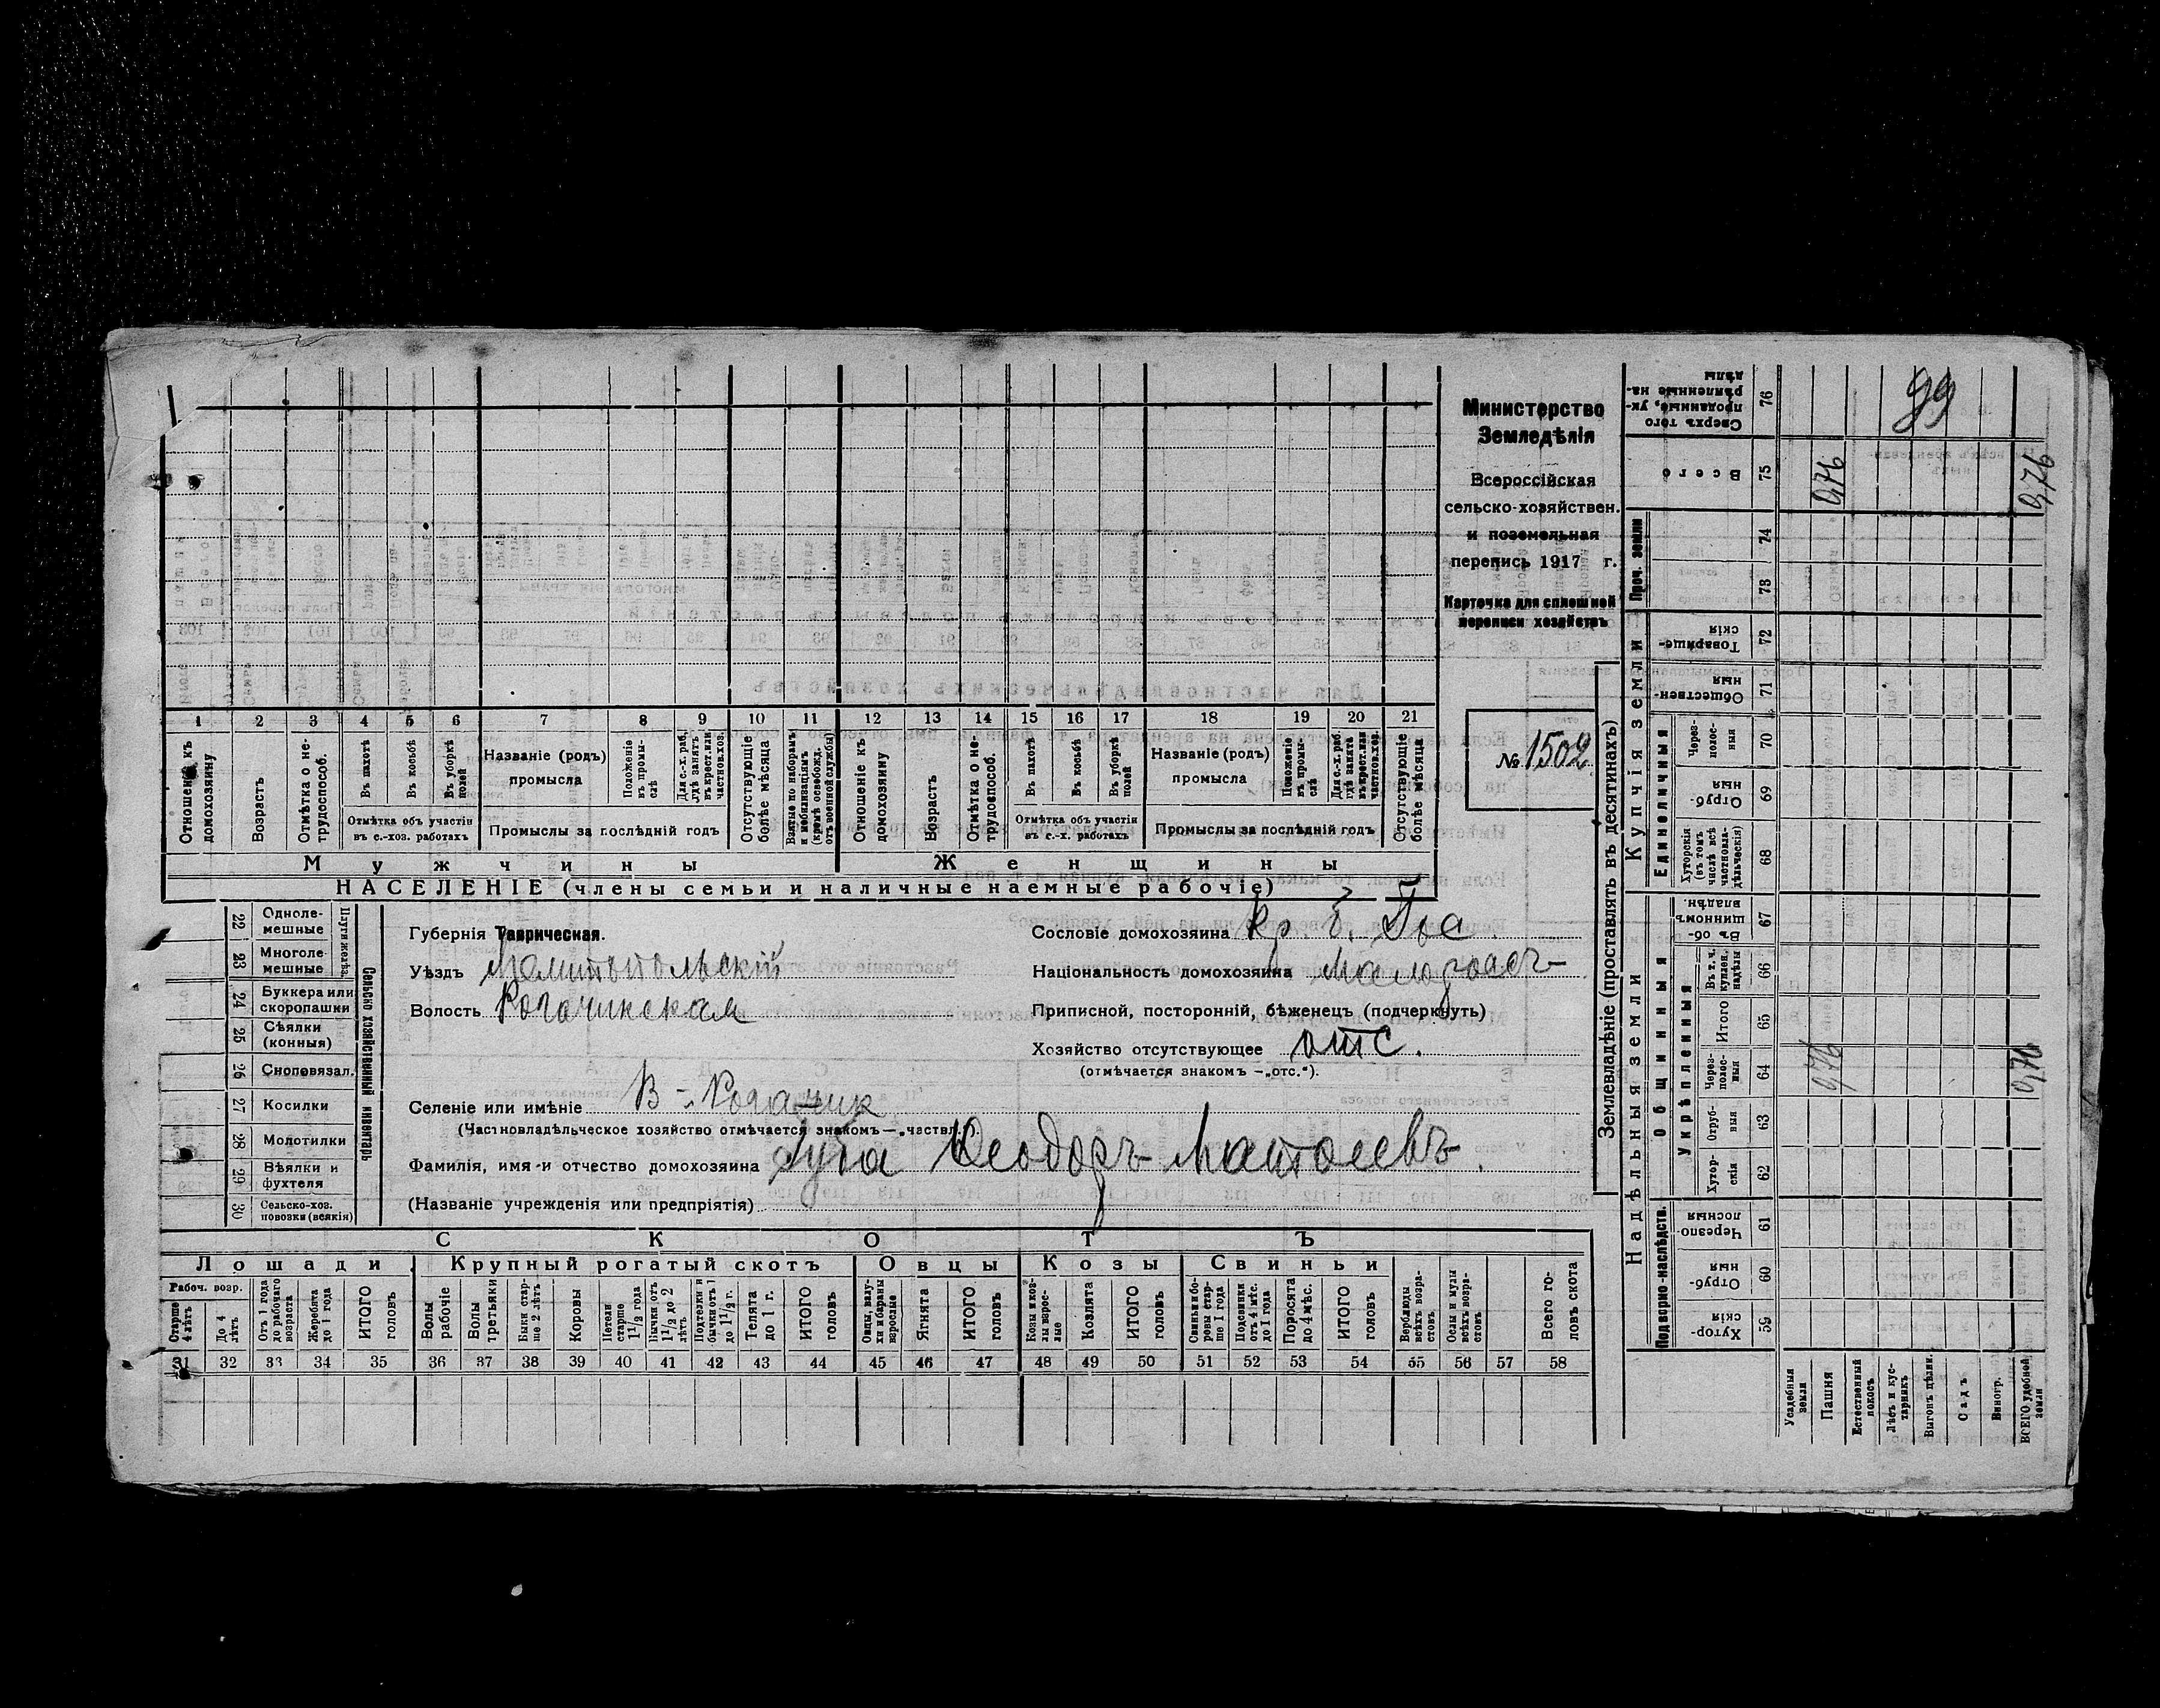 Министерство
Земледѣлія
Всероссійская
сельско-хозяйствен.
и поземельная
перепись 1917 г.
Карточка для сплошной
переписи хозяйствъ
№ 1502
99
1 2 3 4 5 6 7 8 9 10 11 12 13 14 15 16 17 18 19 20 21
Отношеніе къ домохозяину
Возрастъ
Отмѣтка о нетрудоспособ.
Въ пахотѣ
Въ косьбѣ
Въ уборкѣ полей
Отмѣтка объ участіи въ с.-хоз. работахъ
Названіе (родъ) промысла
Положеніе въ промыслѣ
Для с.-х. раб. гдѣ занятъ въ крест. или частнов. хоз.
Промыслы за послѣдній годъ
Отсутствующіе болѣе мѣсяца
Взятые по наборамъ и мобилизаціямъ (кромѣ освобожд. отъ военной службы)
Отношеніе къ домохозяину
Возрастъ
Отмѣтка о нетрудоспособ.
Въ пахотѣ
Въ косьбѣ
Въ уборкѣ полей
Отмѣтка объ участіи въ с.-х. работахъ
Названіе (родъ) промысла
Положеніе въ промыслѣ
Для с.-х. раб. гдѣ занята въ крест. или частнов. хоз.
Промыслы за послѣдній годъ
Отсутствующіе болѣе мѣсяца
Мужчины Женщины
НАСЕЛЕНІЕ (члены семьи и наличные наемные рабочіе)
Сельско хозяйственный инвентарь
Плуги желѣз.
22 Однолемешные
23 Многолемешные
24 Буккера или скоропашни
25 Сѣялки (конныя)
26 Сноповязал.
27 Косилки
28 Молотилки
29 Вѣялки и фухтеля
30 Сельско-хоз. повозки (всякія)
Губернія Таврическая.
Уѣздъ Мелитопольскій
Волость Рогачинская
Сословіе домохозяина кр. б. Гос
Національность домохозяина Малоросъ
Приписной, посторонній, бѣженецъ (подчеркнуть)
Хозяйство отсутствующее отс.
(отмѣчается знакомъ —„отс.“).
Селеніе или имѣніе В-Рогачик
(Частновладѣльческое хозяйство отмѣчается знакомъ—„частвл.“).
Фамилія, имя и отчество домохозяина Ѳеодоръ
(Названіе учрежденія или предпріятія)
СКОТЪ
Лошади Крупный рогатый скотъ Овцы Козы Свиньи
Рабоч. возр.
Старше 4 лѣтъ
До 4 лѣтъ
Отъ 1 года до рабочаго возраста
Жеребята до 1 года
ИТОГО головъ
Волы рабочіе
Волы третьяки
Быки старше 2 лѣтъ
Коровы
Нетели старше 1 1/2 года
Бычки отъ 1 1/2 до 2 лѣтъ
Подтелки и бычки отъ 1 до 1 1/2 г.
Телята до 1 г.
ИТОГО головъ
Овцы, валухи и бараны взрослые
Ягнята
ИТОГО головъ
Козы и козлы взрослые
Козлята
ИТОГО головъ
Свиньи и боровы старше 1 года
Подсвинки отъ 4 мѣс. до 1 года
Поросята до 4 мѣс.
ИТОГО головъ
Верблюды всѣхъ возрастовъ
Ослы и мулы всѣхъ возрастовъ
Всего головъ скота
31 32 33 34 35 36 37 38 39 40 41 42 43 44 45 46 47 48 49 50 51 52 53 54 55 56 57 58
Землевладѣніе (проставлять въ десятинахъ)
Надѣльныя земли Купчія земли Проч. земли
Подворно-наслѣдств.
Общинныя
Укрѣпленныя
Единоличныя
59 Хуторскія
60 Отрубныя
61 Черезполосныя
62 Хуторскія
63 Отрубныя
64 Черезполосныя 0,76 0,76
65 Итого
66 Въ т. ч. куплен. надѣлы
67 Въ общинномъ владѣн.
68 Хуторскія (въ томъ числѣ всѣ частновладѣльческія)
69 Отрубныя
70 Черезполосныя
71 Общественныя
72 Товарищескія
73
74
75 Всего 0,76 0,76
76 Сверхъ того проданные, укрѣпленные надѣлы
Усадебныя земли
Пашня
Естественный покосъ
Лѣсъ и кустарникъ
Выгонъ цѣлин.
Садъ
Виногр.
ВСЕГО удобной земли